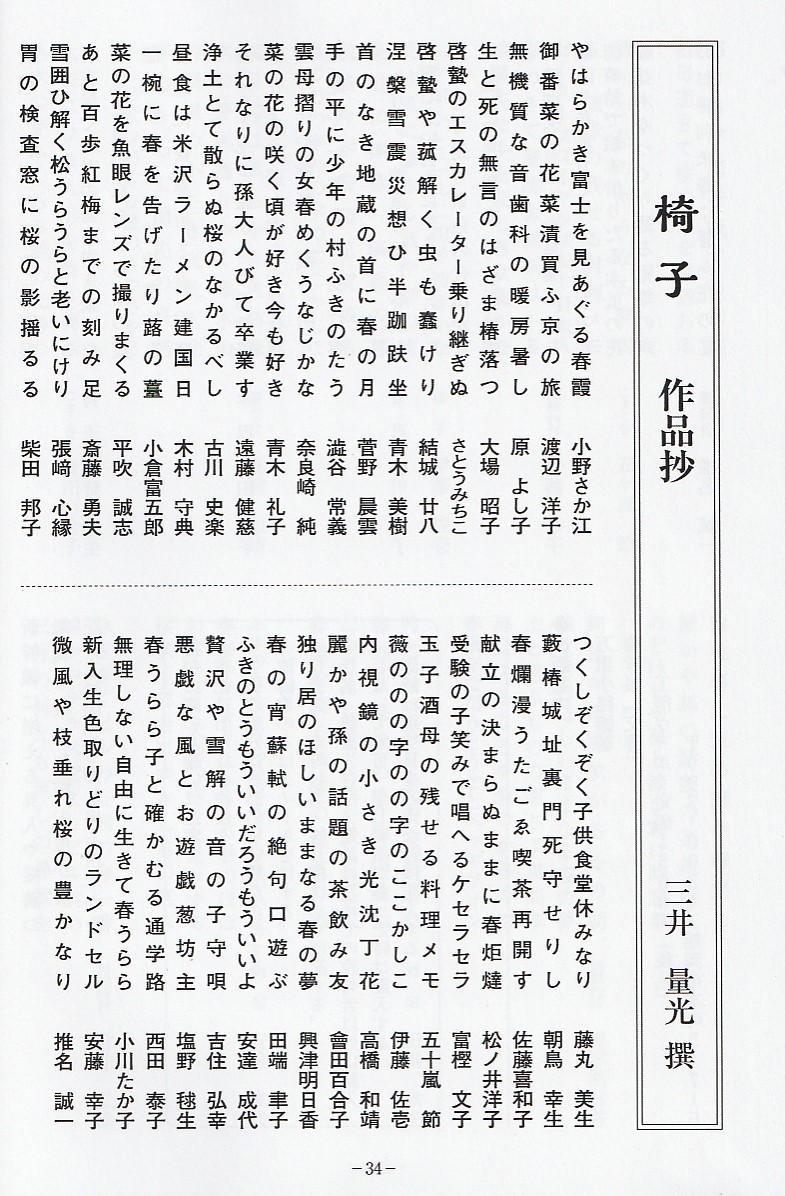 椅子 作品抄 三井 量光 撰
やはらかき富士を見あぐる春霞 小野さか江
御番菜の花菜漬買ふ京の旅 渡辺 洋子
無機質な音歯科の暖房暑し 原 よし子
生と死の無言のはざま椿落つ 大場 昭子
啓蟄のエスカレーター乗り継ぎぬ さとうみちこ
啓蟄や菰解く虫も蠢けり 結城 廿八
涅槃雪震災想ひ半跏趺坐 青木 美樹
首のなき地蔵の首に春の月 菅野 晨雲
手の平に少年の村ふきのたう 澁谷 常義
雲母摺りの女春めくうなじかな 奈良崎 純
菜の花の咲く頃が好き今も好き 青木 礼子
それなりに孫大人びて卒業す 遠藤 健慈
浄土とて散らぬ桜のなかるべし 古川 史楽
昼食は米沢ラーメン建国日 木村 守典
一椀に春を告げたり蕗の薹 小倉富五郎
菜の花を魚眼レンズで撮りまくる 平吹 誠志
あと百歩紅梅までの刻み足 斎藤 勇夫
雪囲ひ解く松うらうらと老いにけり 張﨑 心縁
胃の検査窓に桜の影揺るる 柴田 邦子
つくしぞくぞく子供食堂休みなり 藤丸 美生
藪椿城址裏門死守せりし 朝鳥 幸生
春爛漫うたごゑ喫茶再開す 佐藤喜和子
献立の決まらぬままに春炬燵 松ノ井洋子
受験の子笑みで唱へるケセラセラ 富樫 文子
玉子酒母の残せる料理メモ 五十嵐 節
薇ののの字のの字のここかしこ 伊藤 佐壱
内視鏡の小さき光沈丁花 高橋 和靖
麗かや孫の話題の茶飲み友 會田百合子
独り居のほしいままなる春の夢 興津明日香
春の宵蘇軾の絶句口遊ぶ 田端 聿子
ふきのとうもういいだろうもういいよ 安達 成代
贅沢や雪解の音の子守唄 吉住 弘幸
悪戯な風とお遊戯葱坊主 塩野 毬生
春うらら子と確かむる通学路 西田 泰子
無理しない自由に生きて春うらら 小川たか子
新入生色取りどりのランドセル 安藤 幸子
微風や枝垂れ桜の豊かなり 推名 誠一
−34−